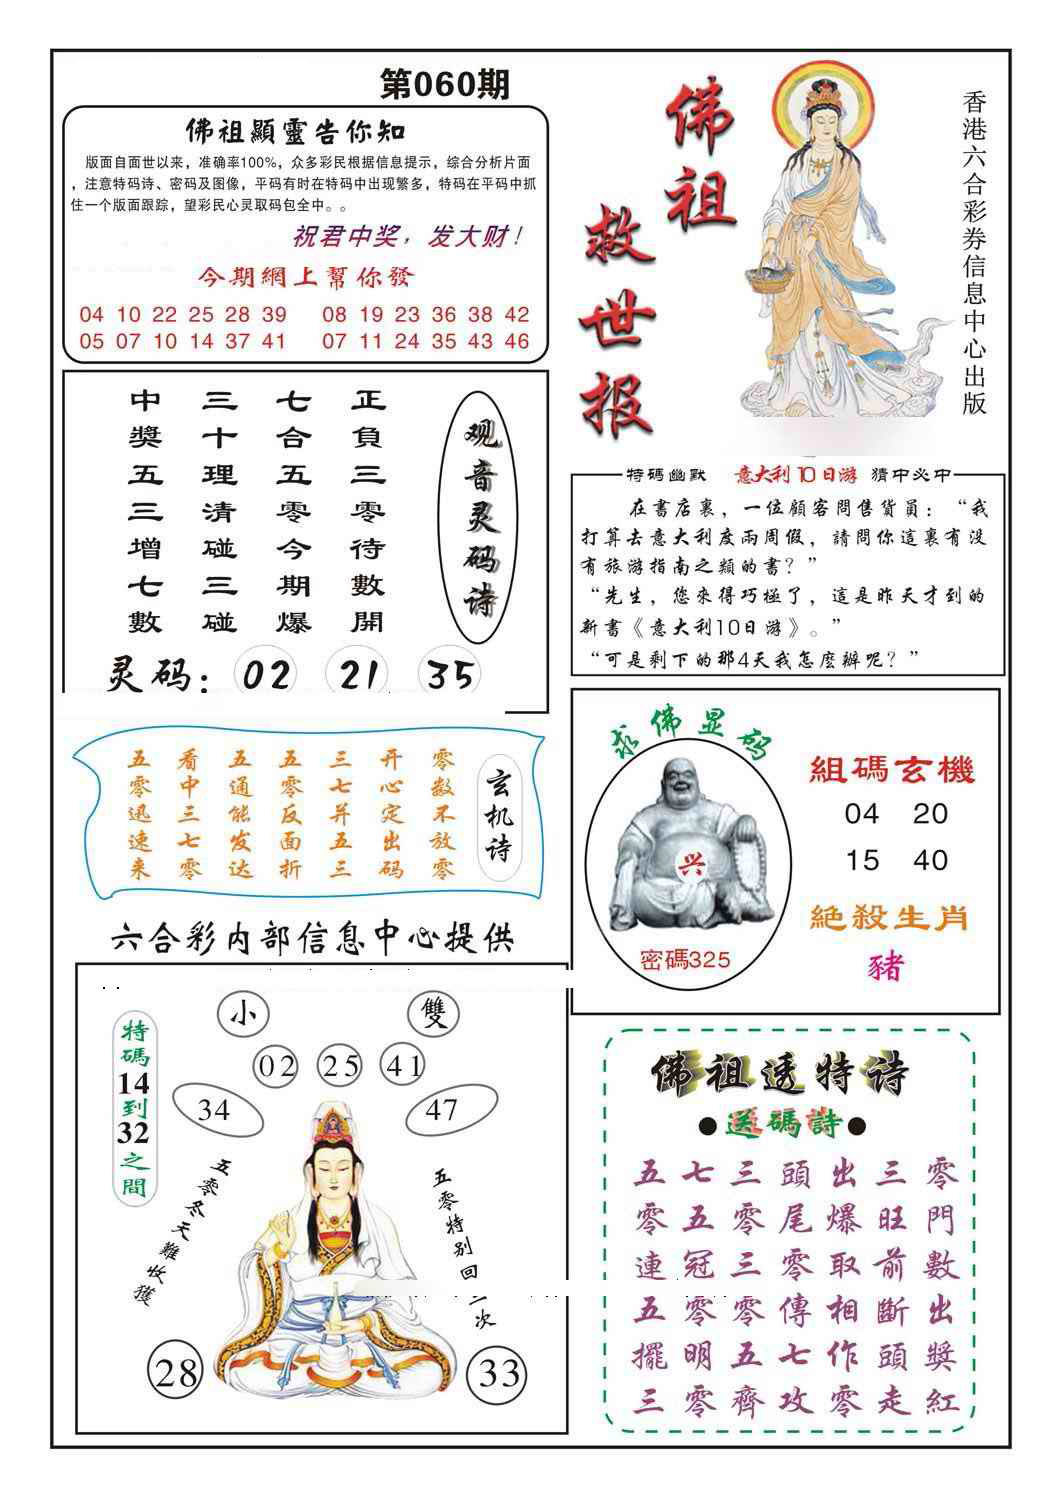 第060期
佛祖顯靈告你知
版面自面世以来，准确率100%，众多彩民根据信息提示，综合分析片面
，注意特码诗、密码及图像，平码有时在特码中出现繁多，特码在平码中抓
住一个版面跟踪，望彩民心灵取码包全中。。
祝君中奖，发大财！
今期網上幫你發
04 10 22 25 28 39 08 19 23 36 38 42
05 07 10 14 37 41 07 11 24 35 43 46
佛祖
救世报
香港六合彩券信息中心出版
观音灵码诗
正負三零待數開
七合五零今期爆
三十理清碰三碰
中獎五三增七數
灵码：02 21 35
特碼幽默 意大利10日游 猜中必中
在書店裏，一位顧客問售貨員：“我
打算去意大利度兩周假，請問你這裏有没
有旅游指南之類的書？”
“先生，您來得巧極了，這是昨天才到的
新書《意大利10日游》。”
“可是剩下的那4天我怎麽辦呢？”
玄机诗
零数不放零
开心定出码
三七并五三
五零反面折
五通能发达
看中三七零
五零迅速来
求佛显码
兴
密碼325
組碼玄機
04 20
15 40
絕殺生肖
豬
六合彩内部信息中心提供
小 雙
02 25 41
34 47
特碼14到32之間
五零冬天難收獲
五零特别回
次
28 33
佛祖透特诗
●送碼詩●
五七三頭出三零
零五零尾爆旺門
連冠三零取前數
五零零傳相斷出
擺明五七作頭獎
三零齊攻零走紅